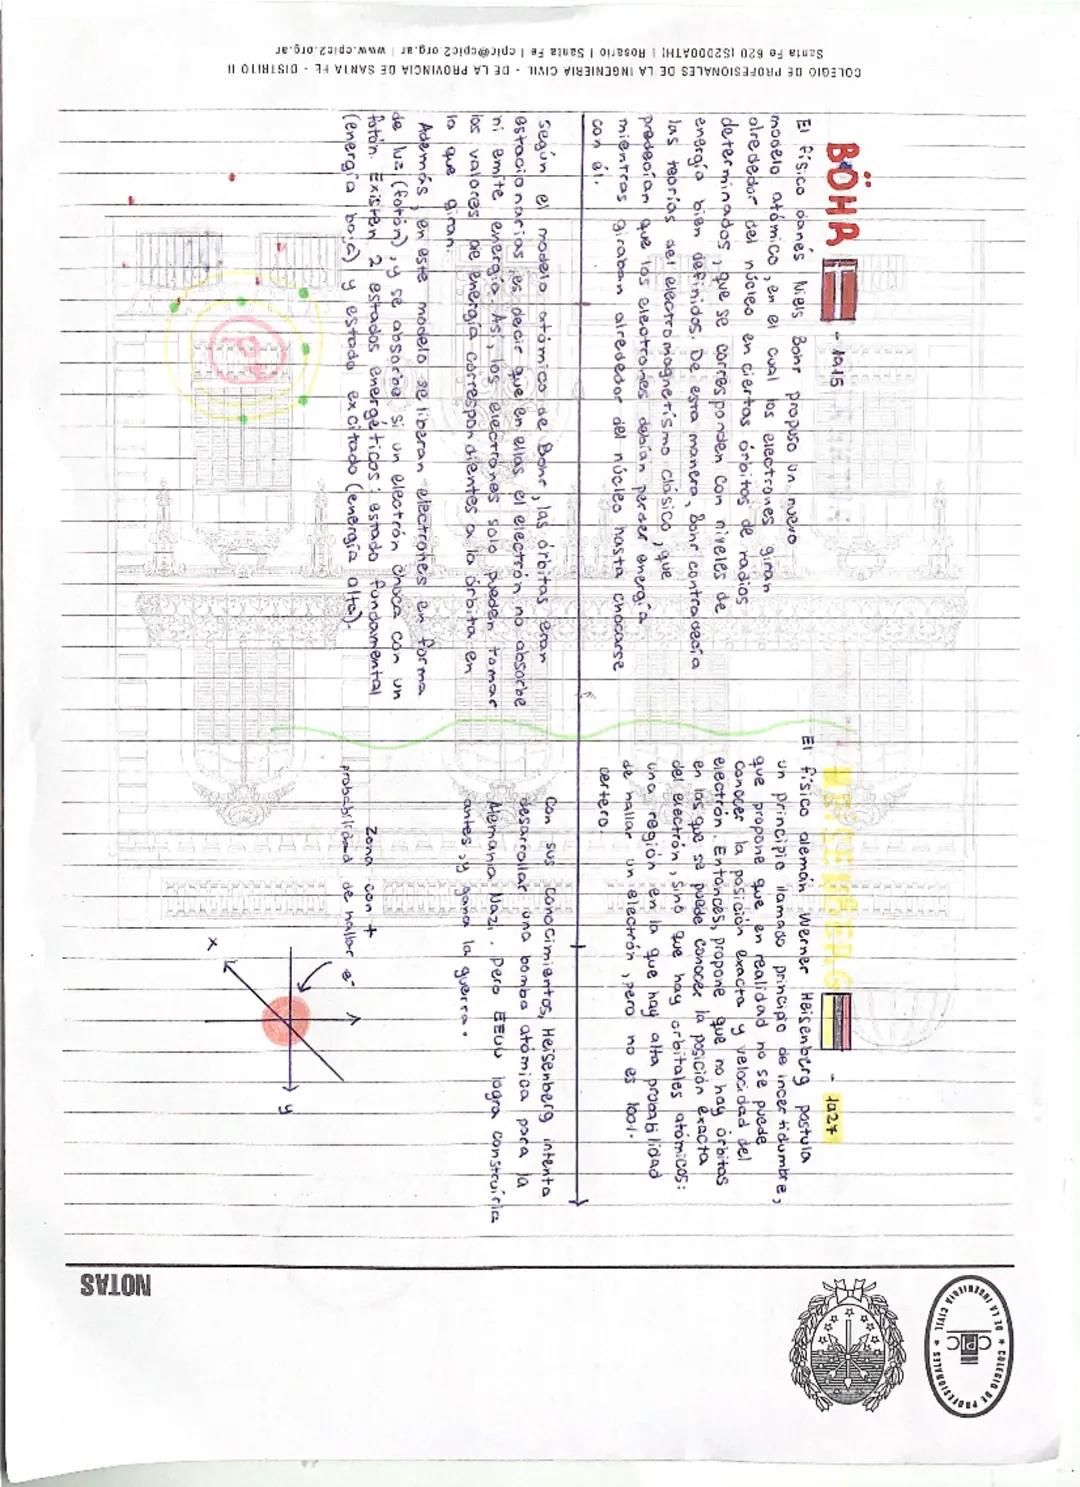 BÖHR - 1915
El físico danés Niels Bohr propuso un nuevo
modelo atómico, en el cual los electrones giran
alrededor del núcleo en ciertas órbitas de radios
determinados, que se corresponden con niveles de
energía bien definidos. De esta manera, Bohr contradecía
las teorías del electromagnetismo clásico, que
predecían que los electrones debían perder energía
mientras giraban alrededor del núcleo hasta chocarse
con él.
Según el modelo atómico de Bohr, las órbitas eran
estacionarias, es decir que en ellas el electrón no absorbe
ni emite energía. Así, los electrones solo pueden tomar
los valores de energía correspondientes a la órbita en
la que giran.
Además, en este modelo se liberan electrones en forma
de luz (fotón), y se absorbe si un electrón choca con un
fotón. Existen 2 estados energéticos: estado fundamental
(energía baja) y estado excitado (energía alta).
HEISENBERG - 1927
El físico alemán Werner Heisenberg postula
un principio llamado principio de incertidumbre,
que propone que en realidad no se puede
conocer la posición exacta y velocidad del
electrón. Entonces, propone que no hay órbitas
en las que se puede conocer la posición exacta
del electrón, sino que hay orbitales atómicos:
una región en la que hay alta probabilidad
de hallar un electrón, pero no es 100%
certero.
Con sus conocimientos, Heisenberg intenta
desarrollar una bomba atómica para la
Alemania Nazi. Pero EEUU logra construirla
antes, y gana la guerra.
Zona con +
probabilidad de hallar e⁻
x
y
NOTAS
COLEGIO DE PROFESIONALES * DE LA INGENIERIA CIVIL *
CPIC
COLEGIO DE PROFESIONALES DE LA INGENIERIA CIVIL - DE LA PROVINCIA DE SANTA FE - DISTRITO II
Santa Fe 620 (S2000ATH) | Rosario | Santa Fe | cpic@cpic2.org.ar | www.cpic2.org.ar